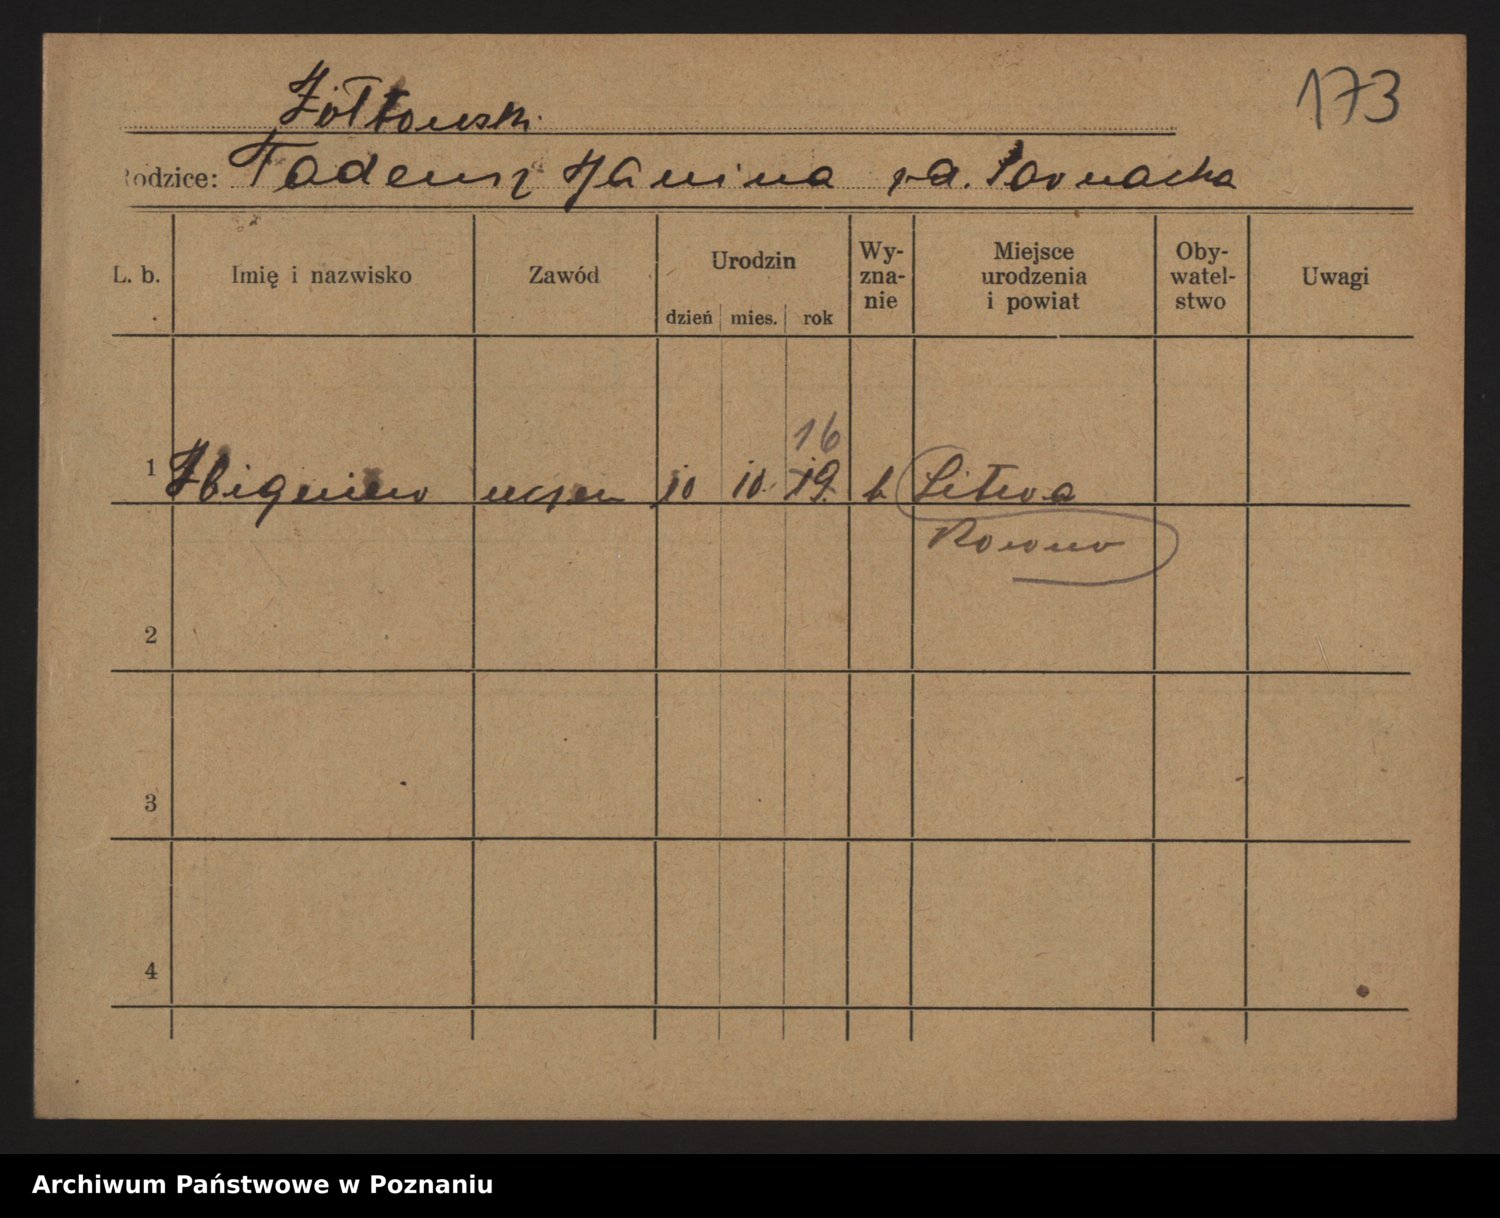 173
Żółtowski
Rodzice: Tadeusz Janina zd. Sarnacka
L. b. Imię i nazwisko Zawód Urodzin dzień mies. rok Wy-zna-nie Miejsce urodzenia i powiat Oby-watel-stwo Uwagi
16
1 Zbigniew uczeń 10 10 19 k Litwa
Kowno
2
3
4
Archiwum Państwowe w Poznaniu